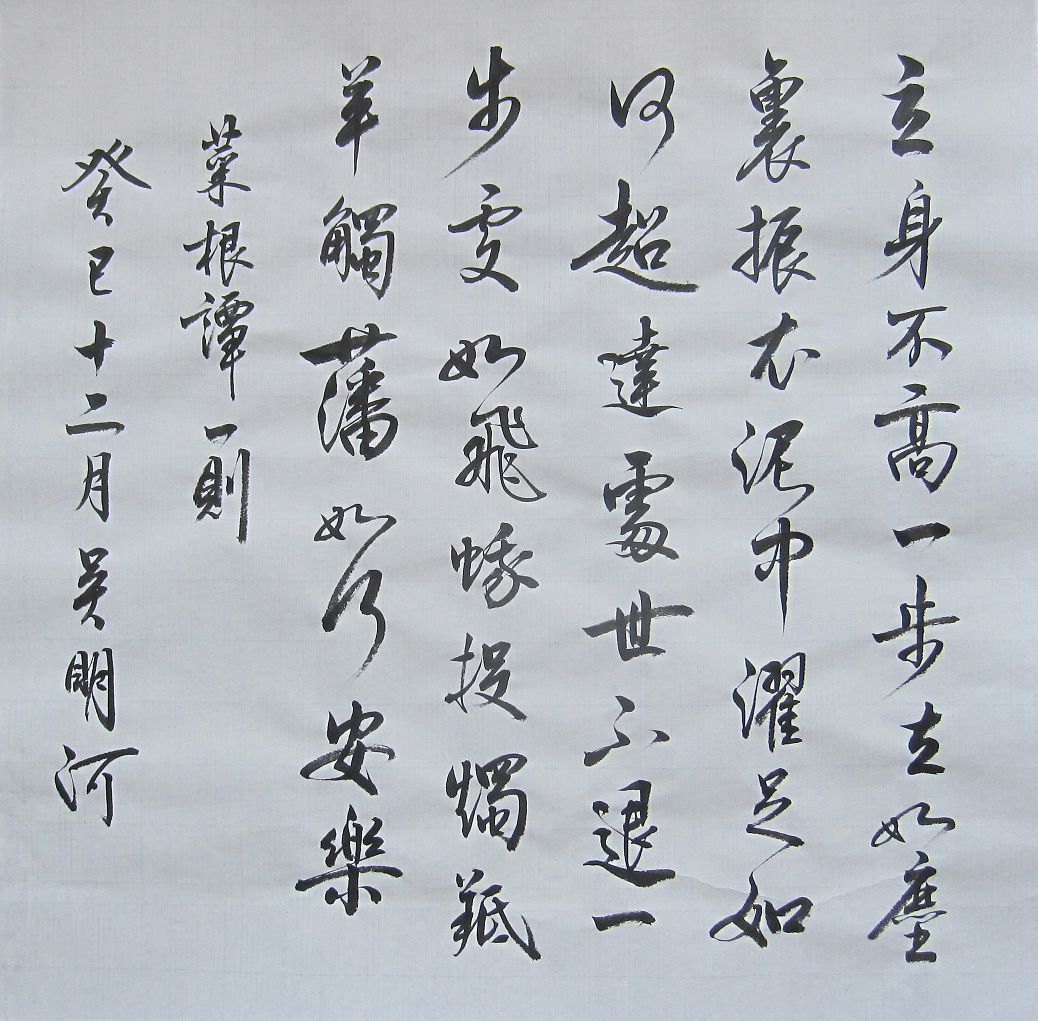 立身不高一步立如塵
裏振衣泥中濯足如
何超達處世不退一
步處如飛蛾投燭羝
羊觸藩如何安樂
菜根譚一則
癸巳十二月吴明河